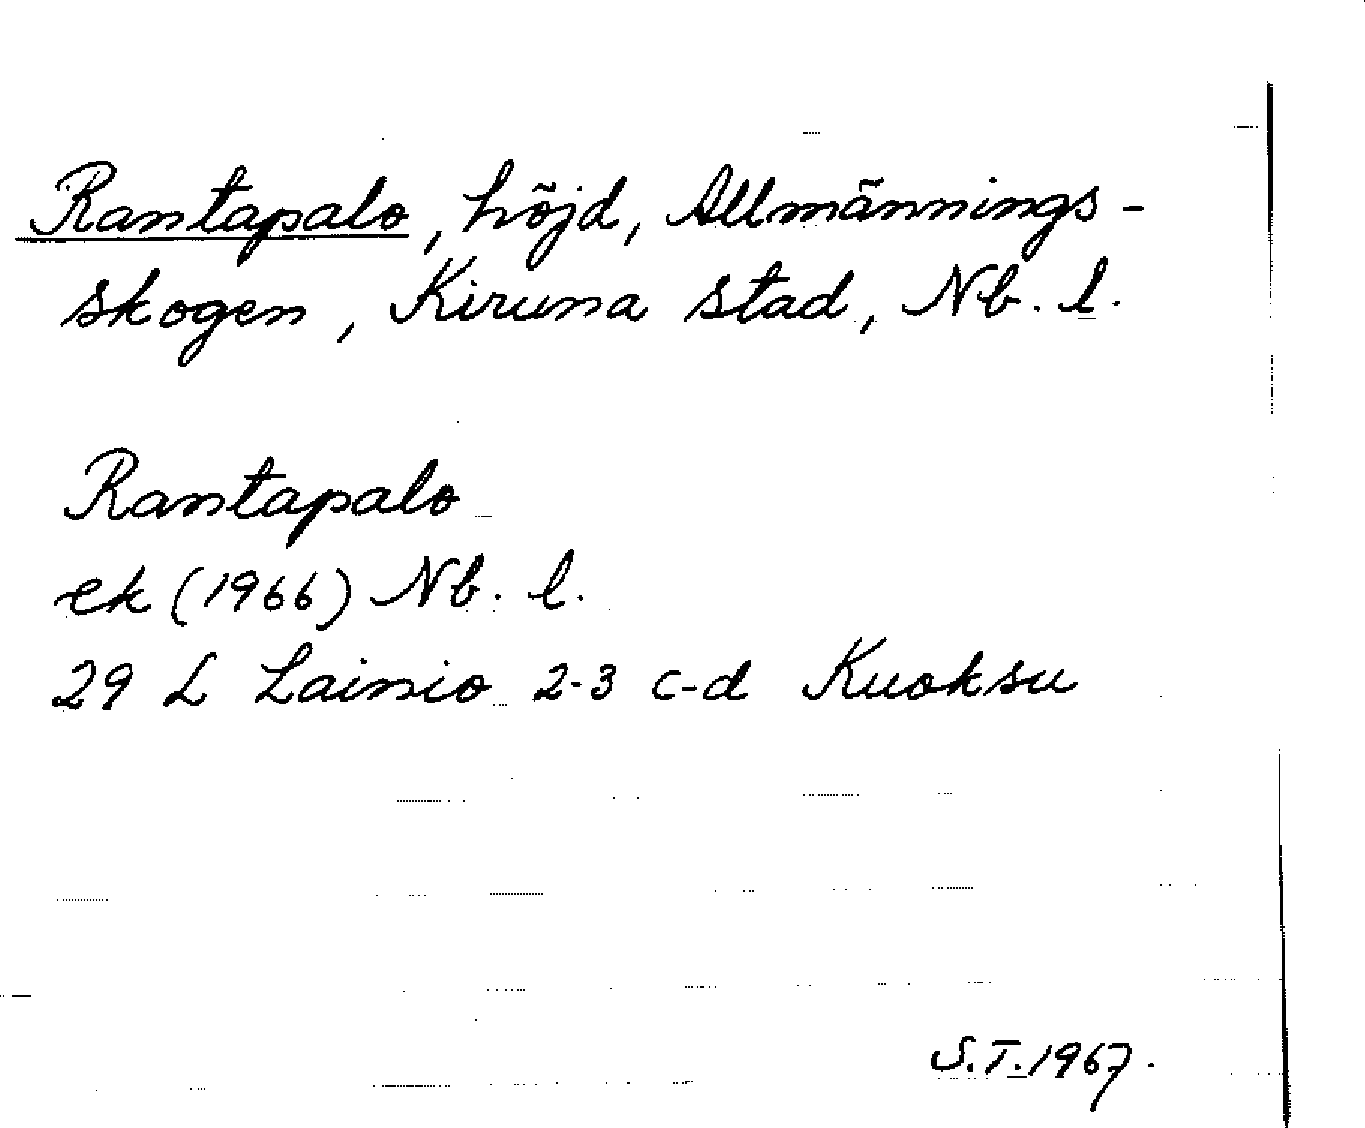 Rantapalo, höjd, Allmännings-
skogen, Kiruna stad, Nb. l.
Rantapalo
ek (1966) Nb. l.
29 L Lainio 2-3 c-d Kuoksu
S.T. 1967.